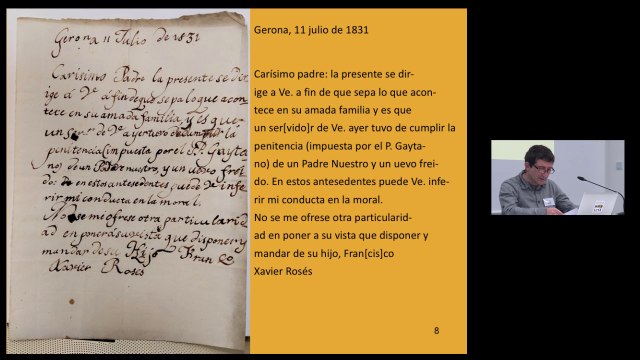 Gerona 11 Julio de 1831
Carisimo Padre la presente se dir
ige á Ve. á fin de que sepa lo que acon
tece en su amada familia, y es que
un ser.r de Ve. ayer tuvo de cumplir la
penitencia (impuesta por el P. Gayta
no) de un Padre nuestro, y un uevo frei
do: en estos antesedentes puede Ve. infe
rir mi conducta en la moral.
No se me ofrese otra particularid
ad en poner á su vista que disponer y
mandar de su Hijo Fran.co
Xavier Rosés
Gerona, 11 julio de 1831
Carísimo padre: la presente se dir-
ige a Ve. a fin de que sepa lo que acon-
tece en su amada familia y es que
un ser[vido]r de Ve. ayer tuvo de cumplir la
penitencia (impuesta por el P. Gayta-
no) de un Padre Nuestro y un uevo frei-
do. En estos antesedentes puede Ve. infe-
rir mi conducta en la moral.
No se me ofrese otra particularid-
ad en poner a su vista que disponer y
mandar de su hijo, Fran[cis]co
Xavier Rosés
8